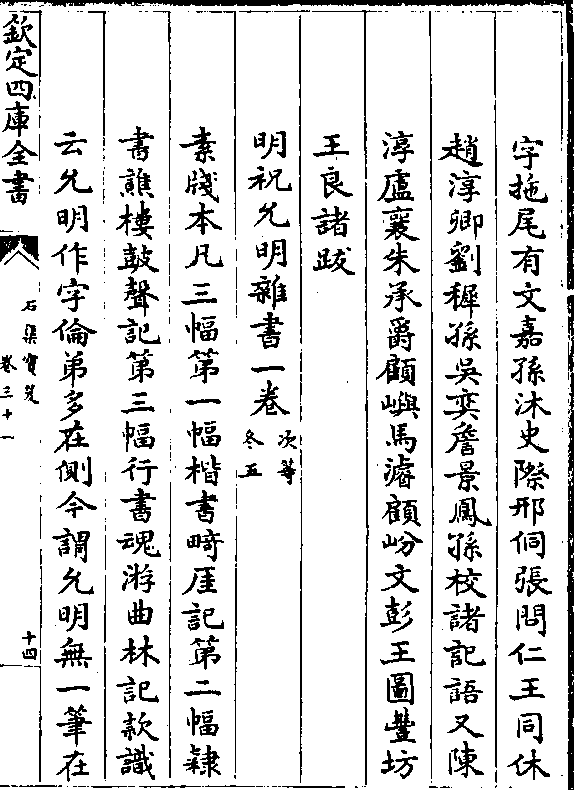 字拖尾有文嘉孫沐史際邢侗張問仁王同休
趙淳卿劉穉孫吳奕詹景鳳孫校諸記語又陳
淳盧襄朱承爵顧嶼馬濬顧岎文彭王圖豊坊
王良諸跋
明祝允明雜書一卷 次等冬五
素牋本凡三幅第一幅楷書畸厓記第二幅隸
書譙樓鼓聲記第三幅行書魂游曲林記款識
云允明作字倫弟多在側今謂允明無一筆在
欽定四庫全書
石渠寳笈
卷三十一
十四